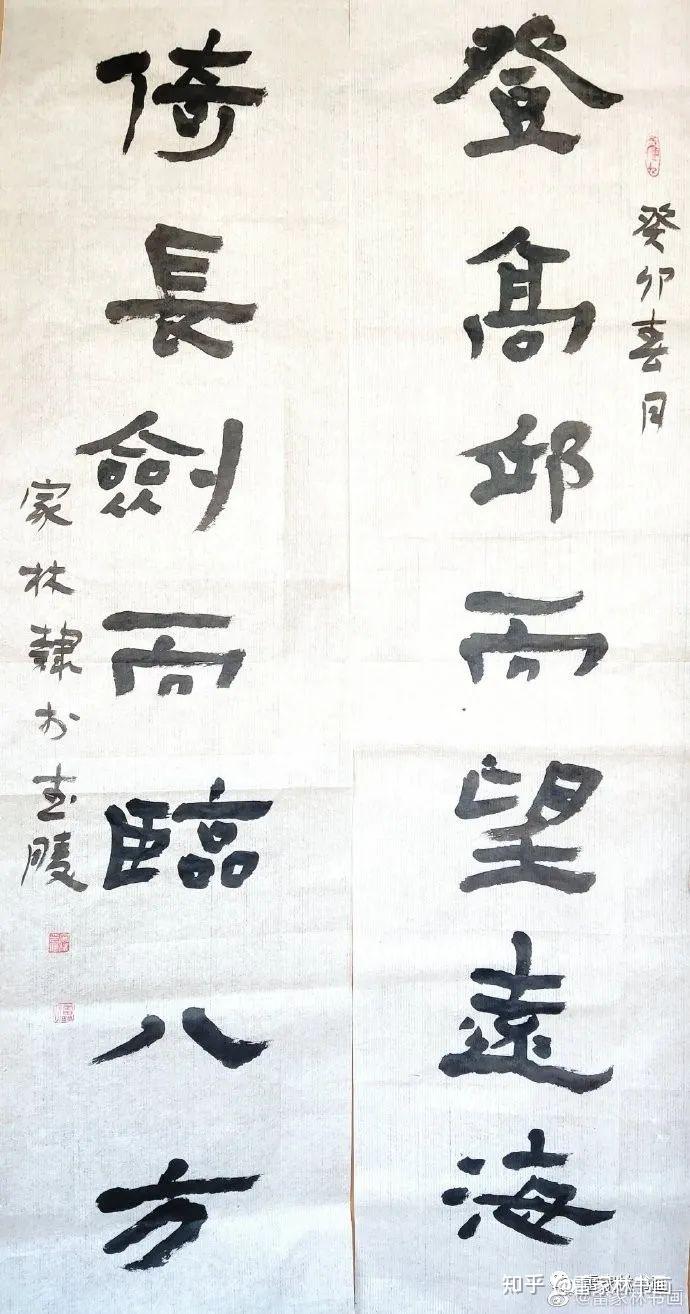 癸卯春月
登高邱而望遠海
倚長劍而臨八方
家林隸於武陵
知乎 @雷家林书画
@雷家林书画